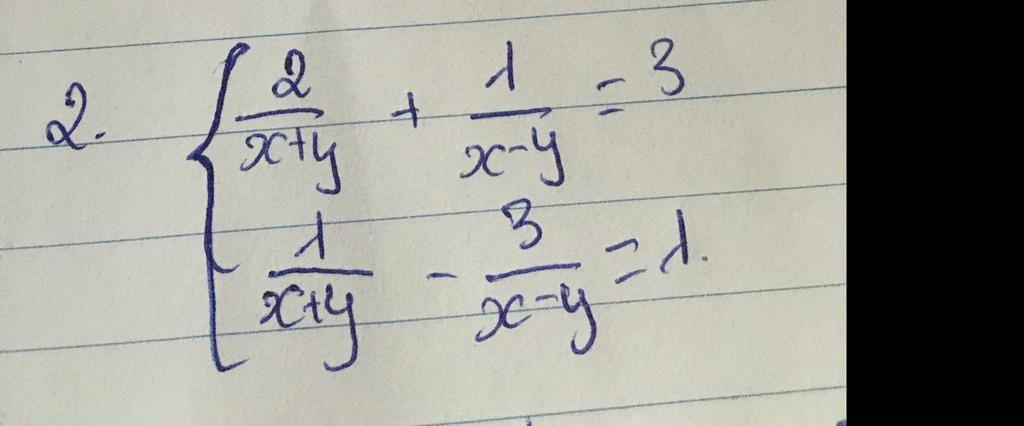 2. { 2/(x+y) + 1/(x-y) = 3
1/(x+y) - 3/(x-y) = 1.